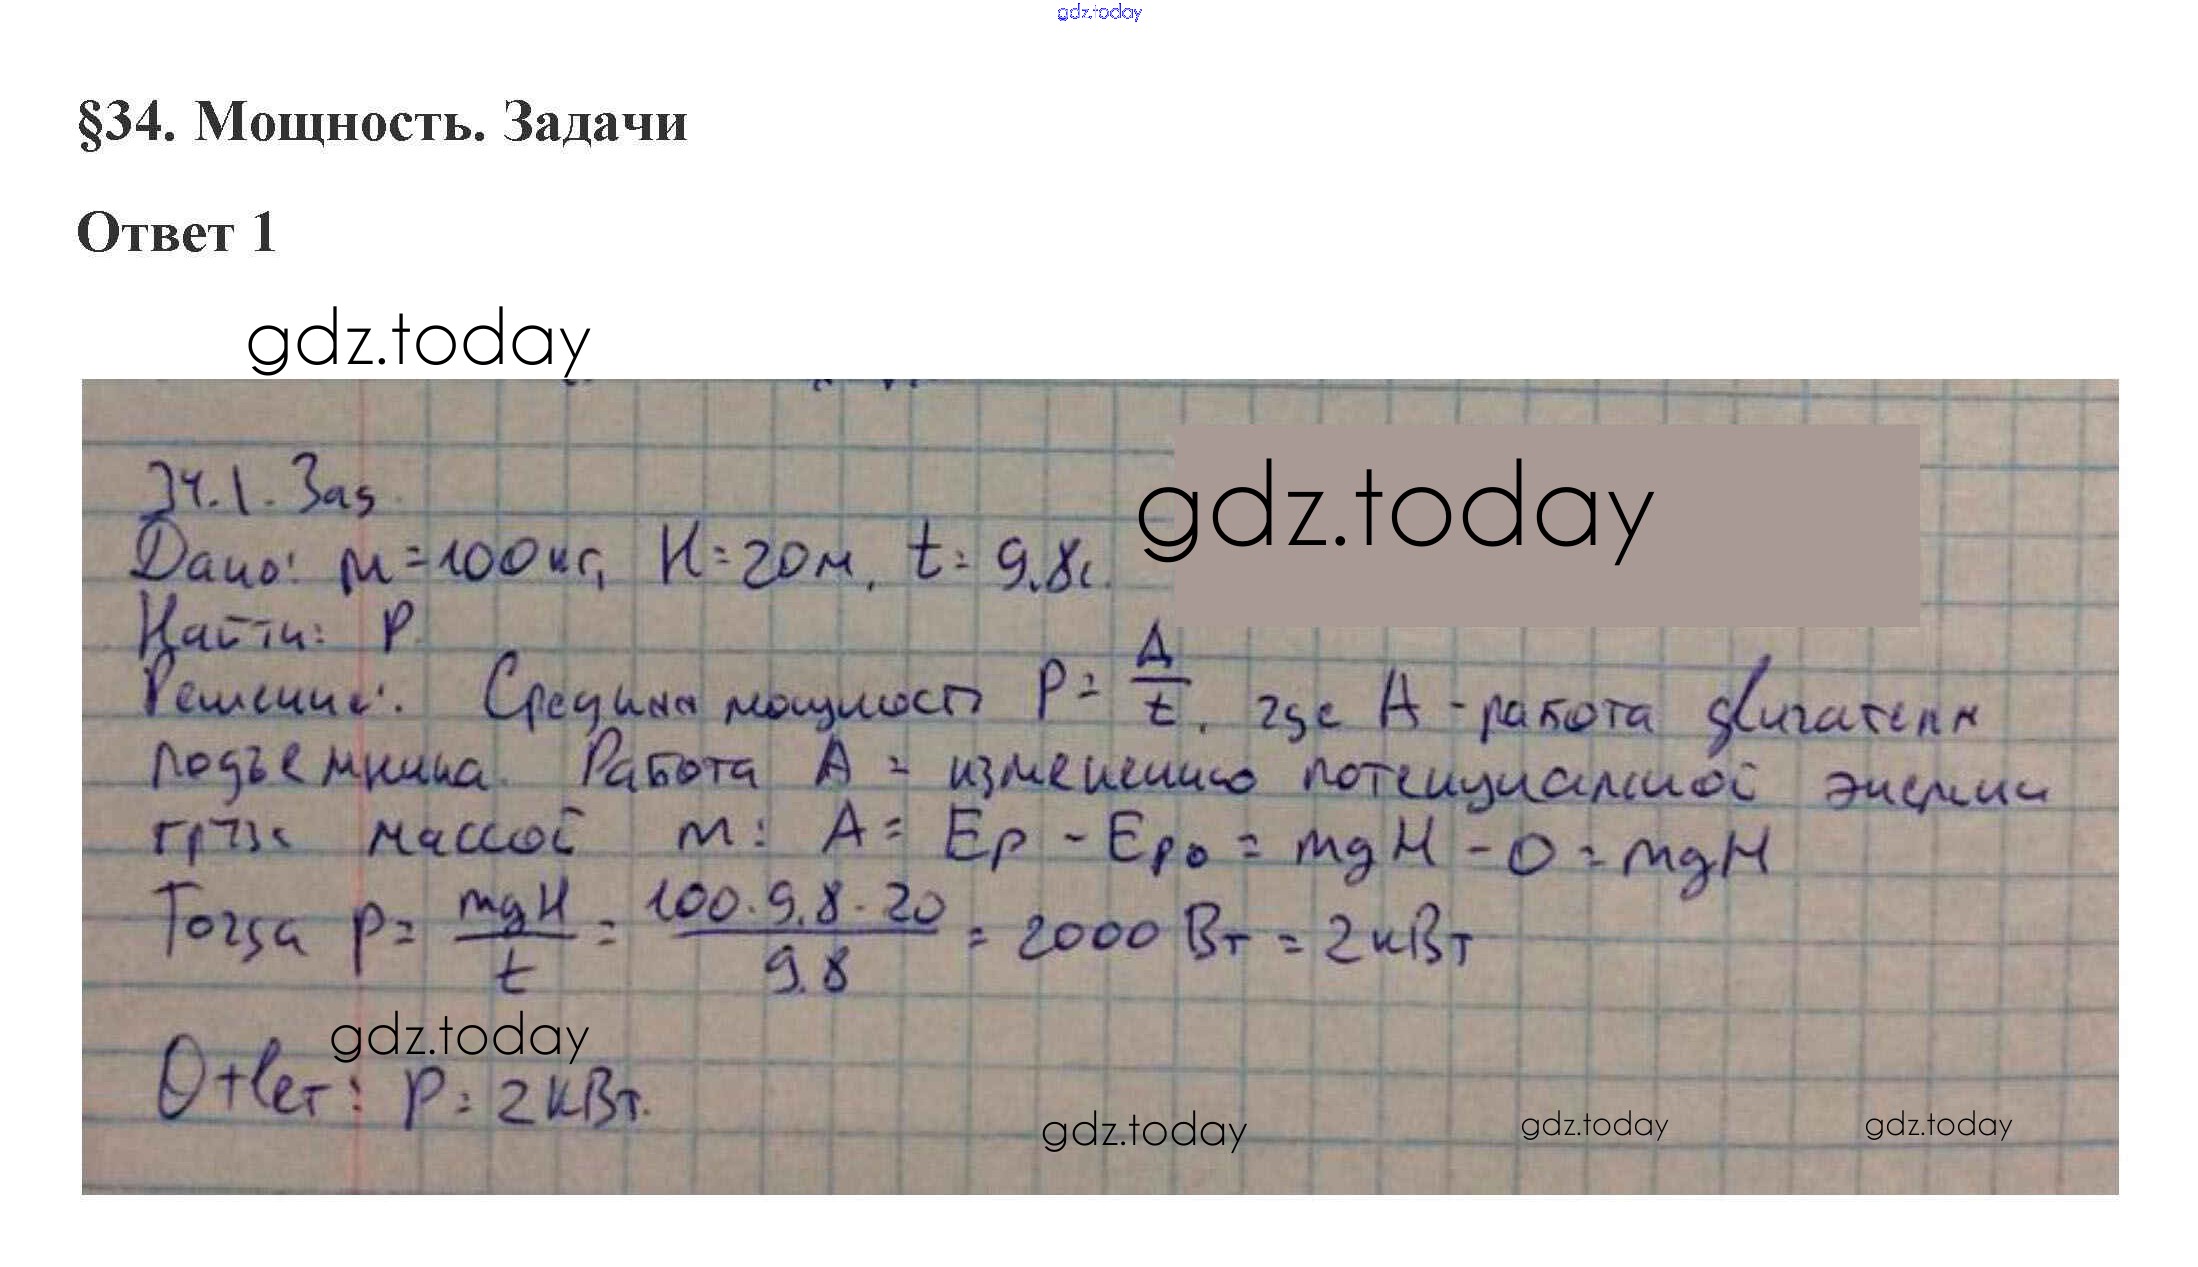 gdz.today
§34. Мощность. Задачи
Ответ 1
gdz.today
34.1. Зад.
gdz.today
Дано: m = 100 кг, H = 20 м, t = 9.8 с.
Найти: P.
Решение: Средняя мощность P = A/t, где A - работа двигателя
подъемника. Работа A = изменению потенциальной энергии
груза массой m: A = Ep - Ep₀ = mgH - 0 = mgH
Тогда P = mgH/t = 100·9.8·20/9.8 = 2000 Вт = 2 кВт
gdz.today
Ответ: P = 2 кВт.
gdz.today gdz.today gdz.today